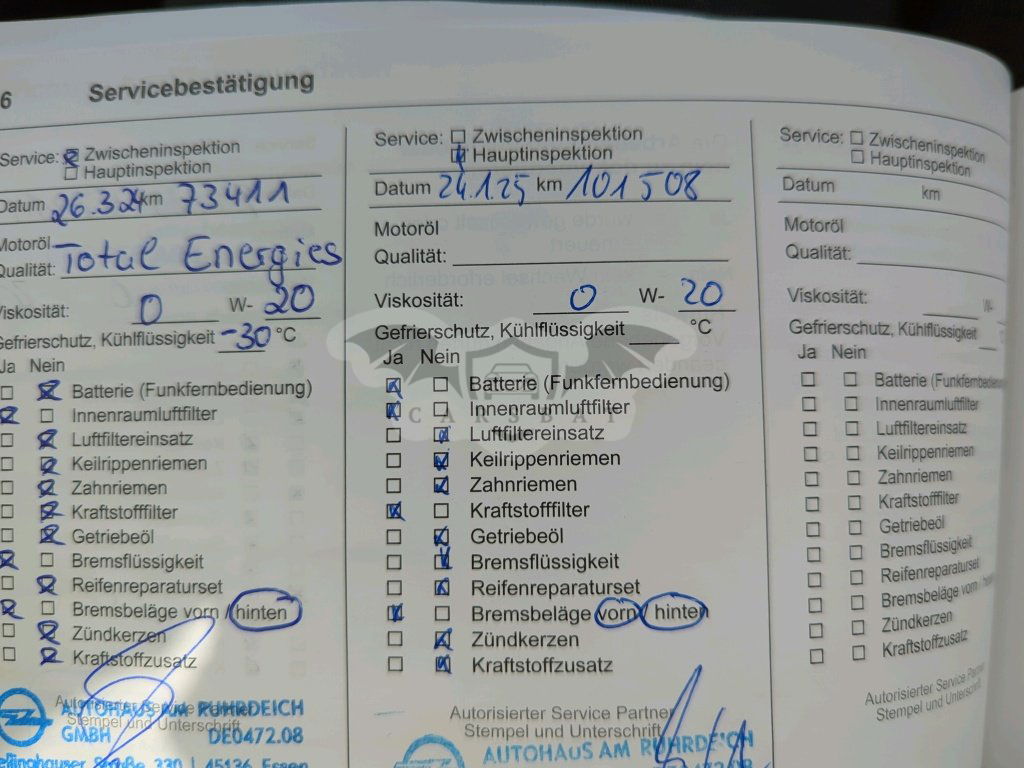 6 Servicebestätigung
Service: Zwischeninspektion
Hauptinspektion
Datum 26.3.24 km 73411
Motoröl
Qualität: Total Energies
Viskosität: 0 W- 20
Gefrierschutz, Kühlflüssigkeit -30 °C
Ja Nein
Batterie (Funkfernbedienung)
Innenraumluftfilter
Luftfiltereinsatz
Keilrippenriemen
Zahnriemen
Kraftstofffilter
Getriebeöl
Bremsflüssigkeit
Reifenreparaturset
Bremsbeläge vorn / hinten
Zündkerzen
Kraftstoffzusatz
Autorisierter Service
Stempel und Unterschrift
AUTOHAUS AM RUHRDEICH
GMBH DE0472.08
45136 Essen
Service: Zwischeninspektion
Hauptinspektion
Datum 24.1.25 km 101508
Motoröl
Qualität:
Viskosität: 0 W- 20
Gefrierschutz, Kühlflüssigkeit °C
Ja Nein
Batterie (Funkfernbedienung)
Innenraumluftfilter
CARSBAT
Luftfiltereinsatz
Keilrippenriemen
Zahnriemen
Kraftstofffilter
Getriebeöl
Bremsflüssigkeit
Reifenreparaturset
Bremsbeläge vorn / hinten
Zündkerzen
Kraftstoffzusatz
Autorisierter Service Partner
Stempel und Unterschrift
AUTOHAUS AM RUHRDEICH
Service: Zwischeninspektion
Hauptinspektion
Datum km
Motoröl
Qualität:
Viskosität: W-
Gefrierschutz, Kühlflüssigkeit
Ja Nein
Batterie (Funkfernbedienung
Innenraumluftfilter
Luftfiltereinsatz
Keilrippenriemen
Zahnriemen
Kraftstofffilter
Getriebeöl
Bremsflüssigkeit
Reifenreparaturset
Bremsbeläge vorn / hinten
Zündkerzen
Kraftstoffzusatz
Autorisierter Service Partner
Stempel und Unterschrift